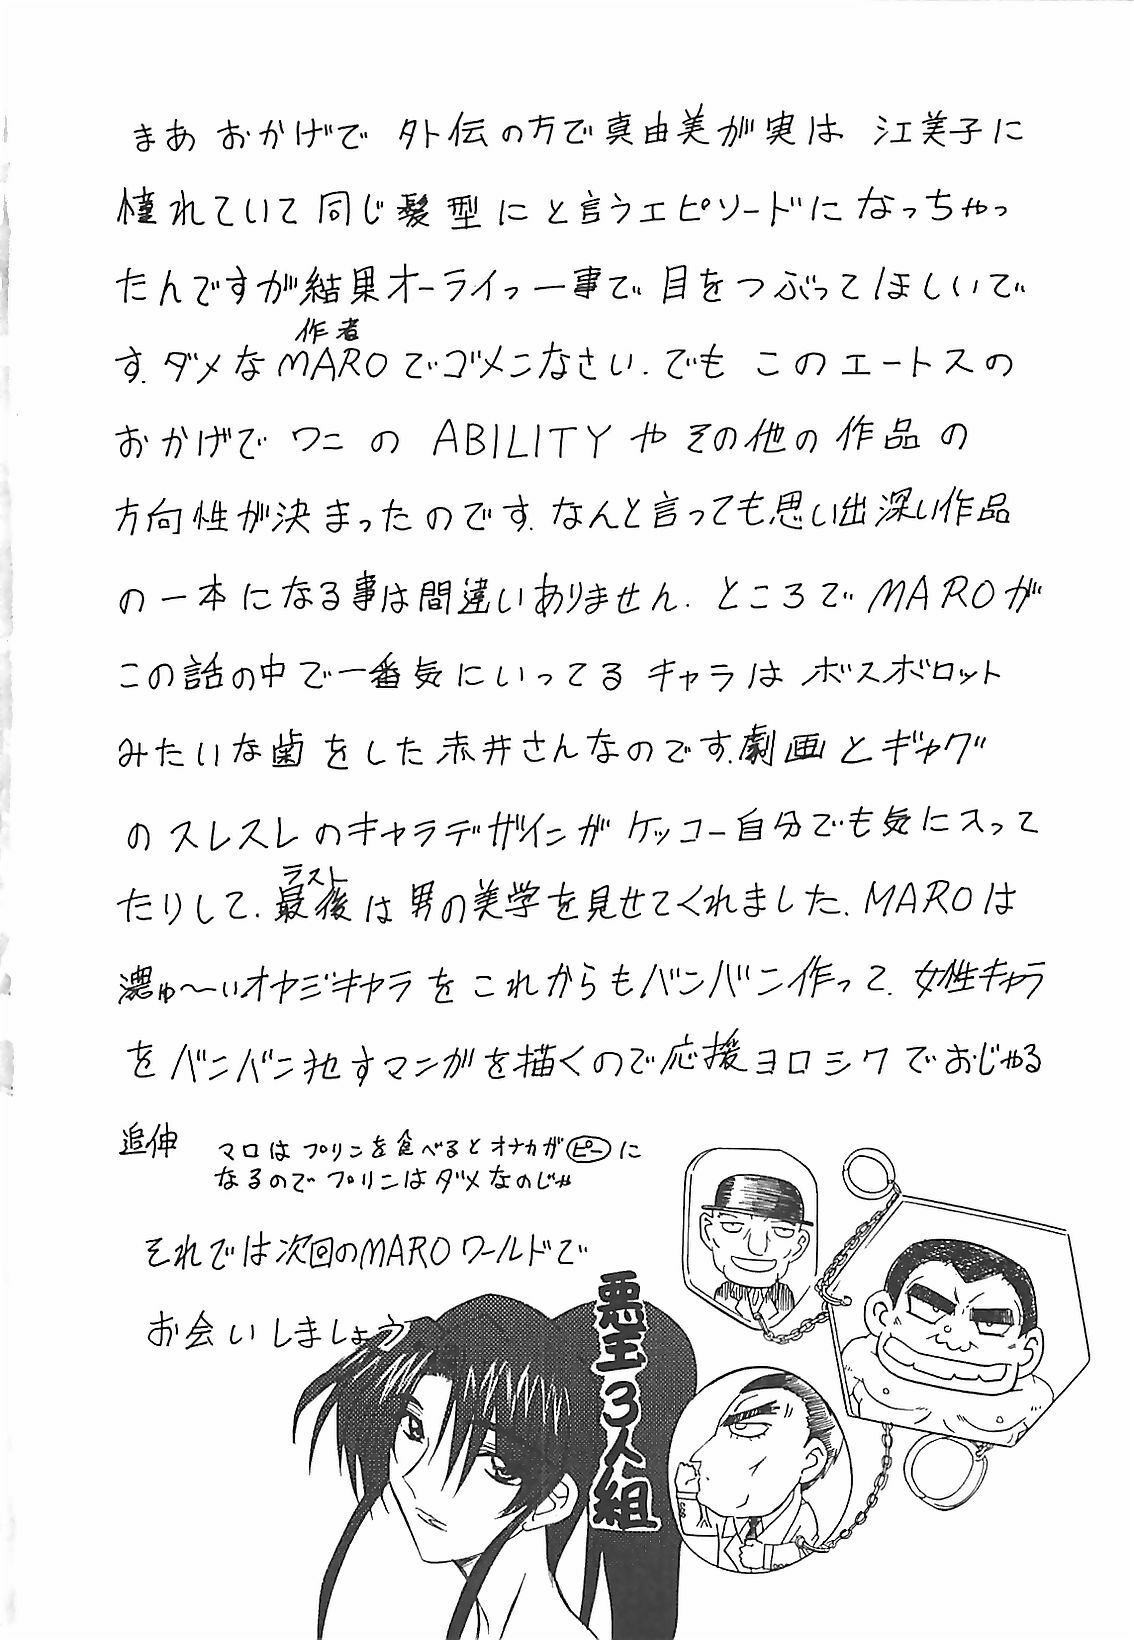 まあ おかげで 外伝の方で真由美が実は 江美子に
憧れていて同じ髪型にと言うエピソードになっちゃっ
たんですが結果オーライっー事で 目をつぶってほしいで
作者
す.ダメなMAROでゴメンなさい.でも このエートスの
おかげで ワニ の ABILITYや その他の 作品 の
方向性が決まったのです.なんと言っても思い出深い作品
の一本になる事は間違いありません.ところでMAROが
この話の中で一番気にいってる キャラは ボスボロット
みたいな歯をした赤井さんなのです.劇画とギャグ
のスレスレのキャラデザインがケッコー自分でも気に入って
ラスト
たりして.最後は男の美学を見せてくれました.MAROは
濃ゅ〜いオヤジキャラをこれからもバンバン作って.女性キャラ
をバンバン犯すマンガを描くので応援ヨロシクでおじゃる
追伸 マロはプリンを食べるとオナカがピーに
なるのでプリンはダメなのじゃ
それでは次回のMAROワールドで
お会いしましょう
悪玉3人組